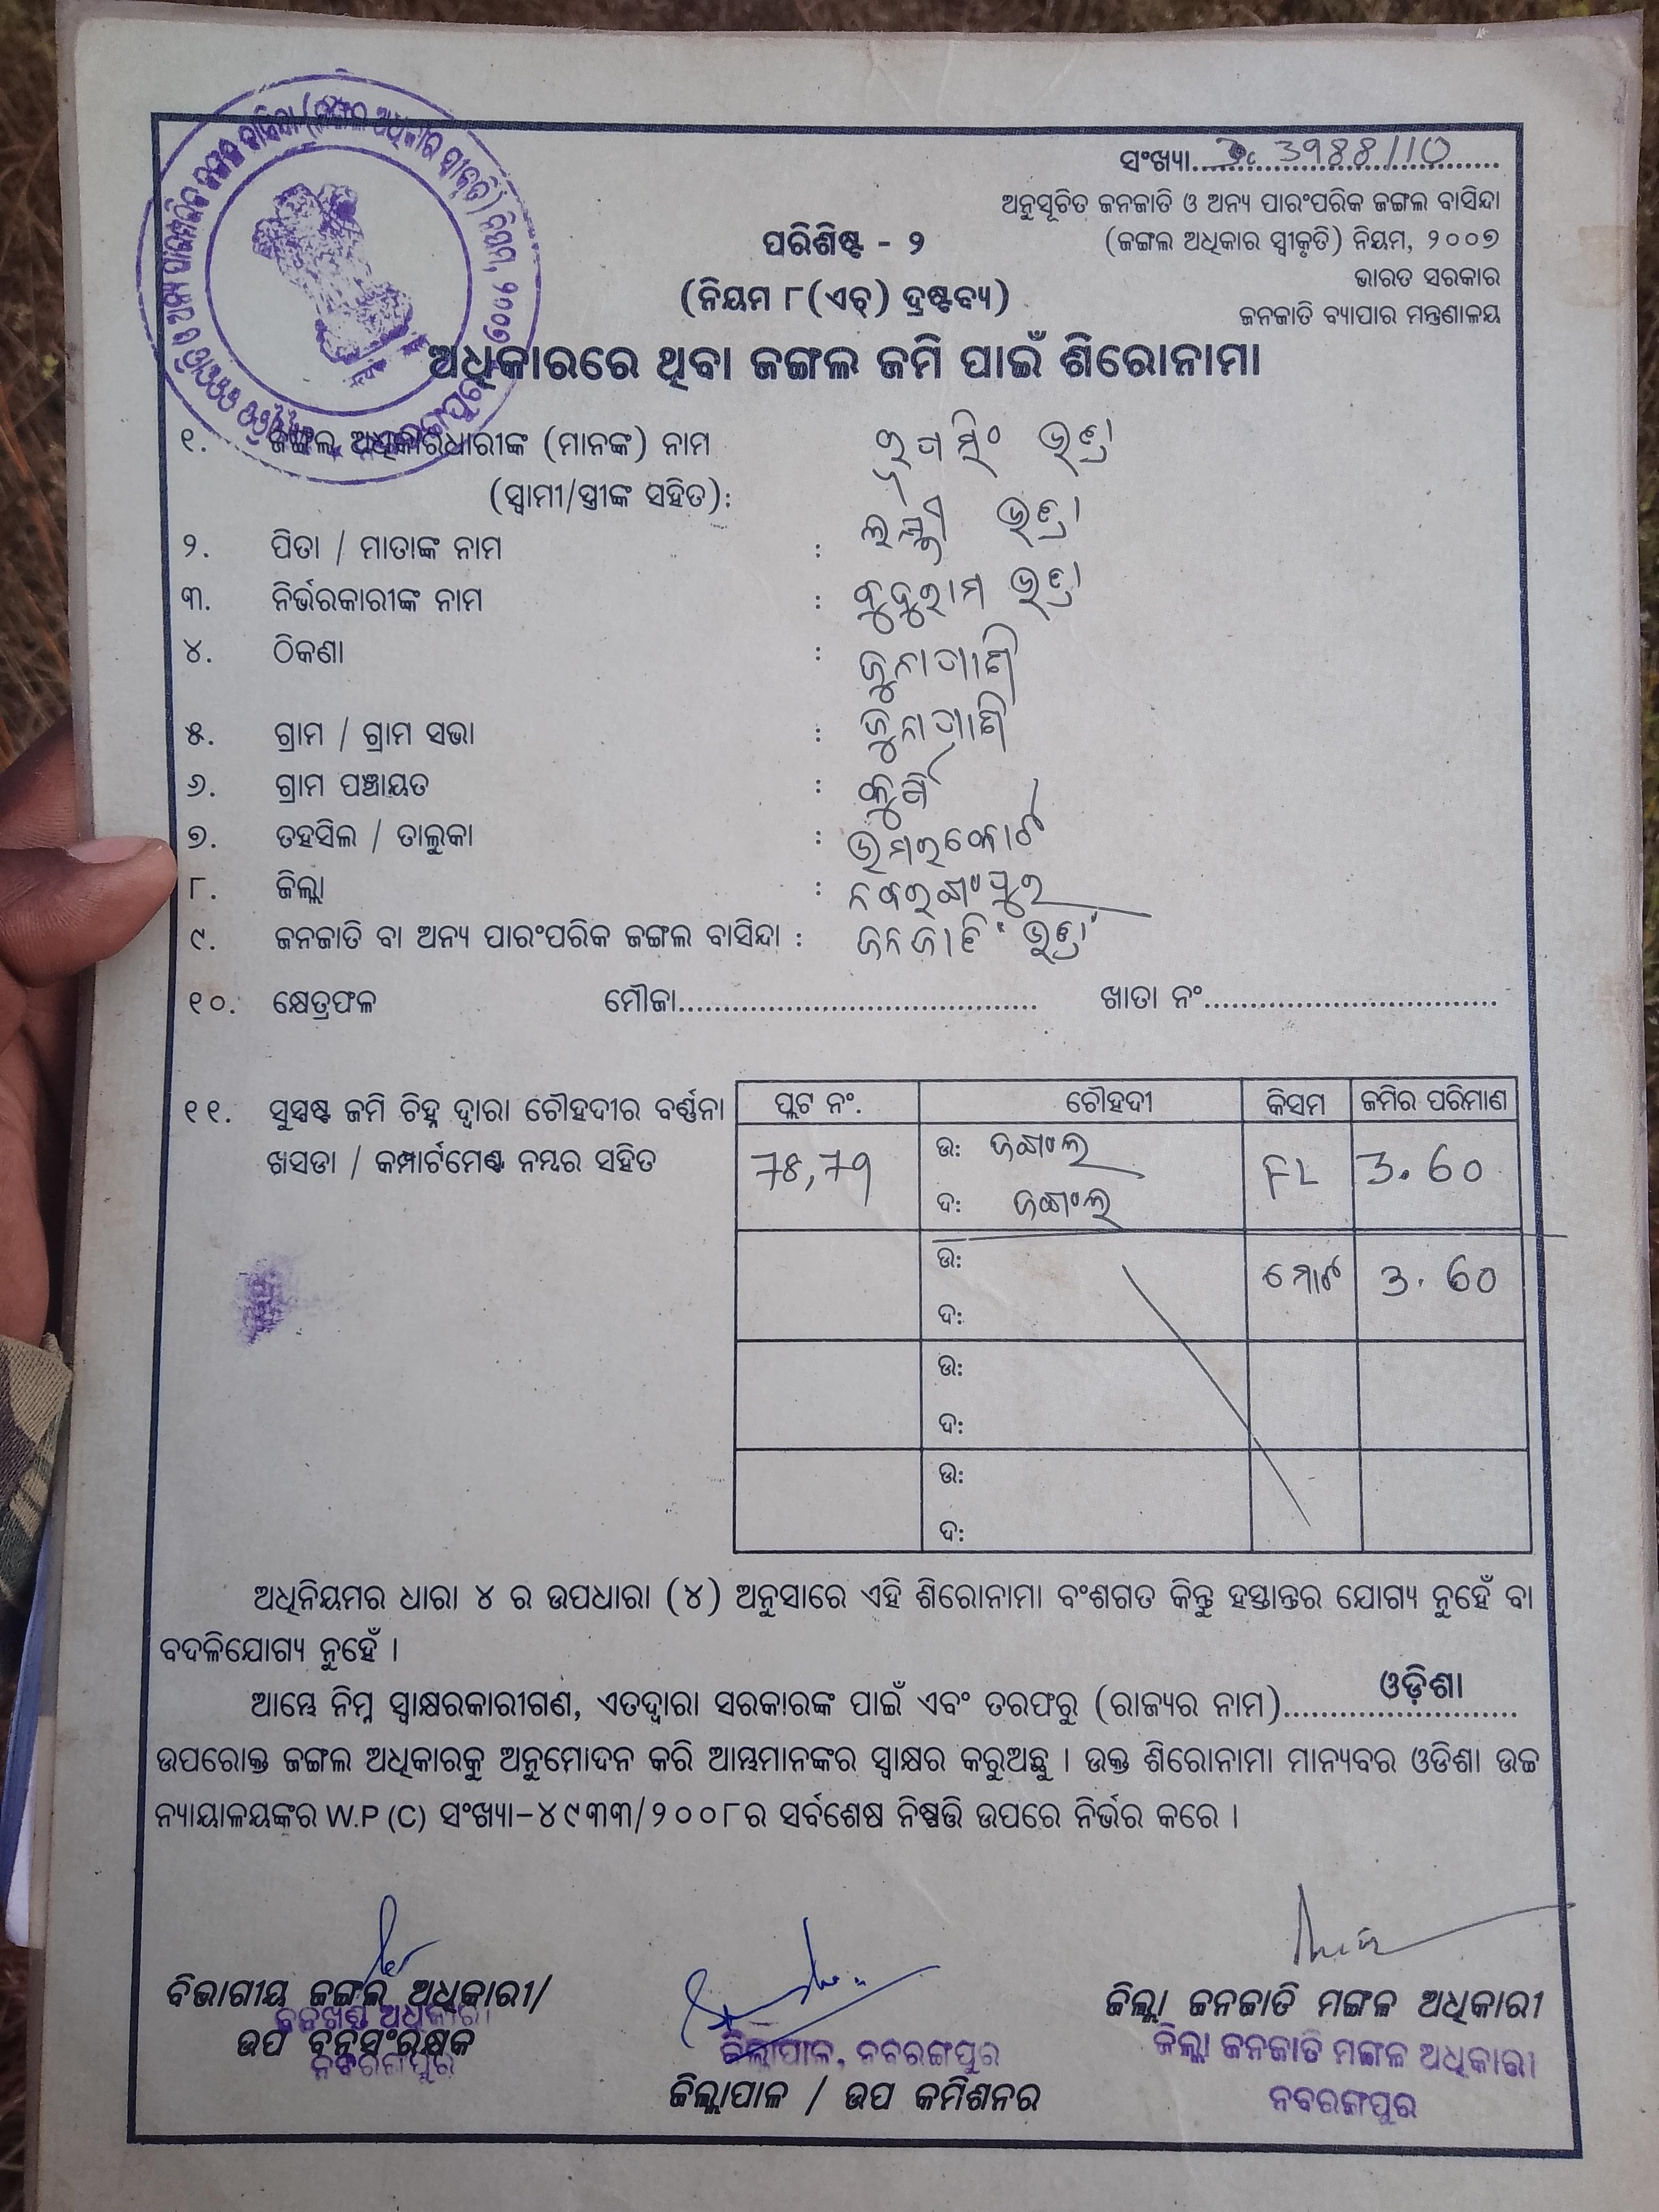 ସଂଖ୍ୟା.......3988/10.......
ଅନୁସୂଚିତ ଜନଜାତି ଓ ଅନ୍ୟ ପାରଂପରିକ ଜଙ୍ଗଲ ବାସିନ୍ଦା
(ଜଙ୍ଗଲ ଅଧିକାର ସ୍ୱୀକୃତି) ନିୟମ, ୨୦୦୭
ଭାରତ ସରକାର
ଜନଜାତି ବ୍ୟାପାର ମନ୍ତ୍ରଣାଳୟ
ପରିଶିଷ୍ଟ - ୨
(ନିୟମ ୮(ଏଚ୍) ଦ୍ରଷ୍ଟବ୍ୟ)
ଅଧିକାରରେ ଥିବା ଜଙ୍ଗଲ ଜମି ପାଇଁ ଶିରୋନାମା
୧. ଜଙ୍ଗଲ ଅଧିକାରଧାରୀଙ୍କ (ମାନଙ୍କ) ନାମ
(ସ୍ୱାମୀ/ସ୍ତ୍ରୀଙ୍କ ସହିତ):
୨. ପିତା / ମାତାଙ୍କ ନାମ :
୩. ନିର୍ଭରକାରୀଙ୍କ ନାମ :
୪. ଠିକଣା : ଜୁନାପାଣି
୫. ଗ୍ରାମ / ଗ୍ରାମ ସଭା : ଜୁନାପାଣି
୬. ଗ୍ରାମ ପଞ୍ଚାୟତ :
୭. ତହସିଲ / ତାଲୁକା : ଉମରକୋଟ
୮. ଜିଲ୍ଲା : ନବରଙ୍ଗପୁର
୯. ଜନଜାତି ବା ଅନ୍ୟ ପାରଂପରିକ ଜଙ୍ଗଲ ବାସିନ୍ଦା : ଜନଜାତି
୧୦. କ୍ଷେତ୍ରଫଳ ମୌଜା........................................ ଖାତା ନଂ................................
୧୧. ସୁସ୍ପଷ୍ଟ ଜମି ଚିହ୍ନ ଦ୍ୱାରା ଚୌହଦୀର ବର୍ଣ୍ଣନା ପ୍ଲଟ ନଂ. ଚୌହଦୀ କିସମ ଜମିର ପରିମାଣ
ଖସଡା / କମ୍ପାର୍ଟମେଣ୍ଟ ନମ୍ବର ସହିତ
ଉ: ଜଙ୍ଗଲ
FL 3.60
ଦ: ଜଙ୍ଗଲ
ଉ: ମୋଟ 3.60
ଦ:
ଉ:
ଦ:
ଉ:
ଦ:
ଅଧିନିୟମର ଧାରା ୪ ର ଉପଧାରା (୪) ଅନୁସାରେ ଏହି ଶିରୋନାମା ବଂଶଗତ କିନ୍ତୁ ହସ୍ତାନ୍ତର ଯୋଗ୍ୟ ନୁହେଁ ବା
ବଦଳିଯୋଗ୍ୟ ନୁହେଁ ।
ଆମ୍ଭେ ନିମ୍ନ ସ୍ୱାକ୍ଷରକାରୀଗଣ, ଏତଦ୍ୱାରା ସରକାରଙ୍କ ପାଇଁ ଏବଂ ତରଫରୁ (ରାଜ୍ୟର ନାମ)........ଓଡ଼ିଶା........
ଉପରୋକ୍ତ ଜଙ୍ଗଲ ଅଧିକାରକୁ ଅନୁମୋଦନ କରି ଆମ୍ଭମାନଙ୍କର ସ୍ୱାକ୍ଷର କରୁଅଛୁ । ଉକ୍ତ ଶିରୋନାମା ମାନ୍ୟବର ଓଡିଶା ଉଚ୍ଚ
ନ୍ୟାୟାଳୟଙ୍କର W.P (C) ସଂଖ୍ୟା-୪୯୩୩/୨୦୦୮ର ସର୍ବଶେଷ ନିଷ୍ପତ୍ତି ଉପରେ ନିର୍ଭର କରେ ।
ବିଭାଗୀୟ ଜଙ୍ଗଲ ଅଧିକାରୀ/
ବନଖଣ୍ଡ ଅଧିକାରୀ
ଉପ ବନସଂରକ୍ଷକ
ନବରଙ୍ଗପୁର
ଜିଲ୍ଲାପାଳ, ନବରଙ୍ଗପୁର
ଜିଲ୍ଲାପାଳ / ଉପ କମିଶନର
ଜିଲ୍ଲା ଜନଜାତି ମଙ୍ଗଳ ଅଧିକାରୀ
ଜିଲ୍ଲା ଜନଜାତି ମଙ୍ଗଳ ଅଧିକାରୀ
ନବରଙ୍ଗପୁର